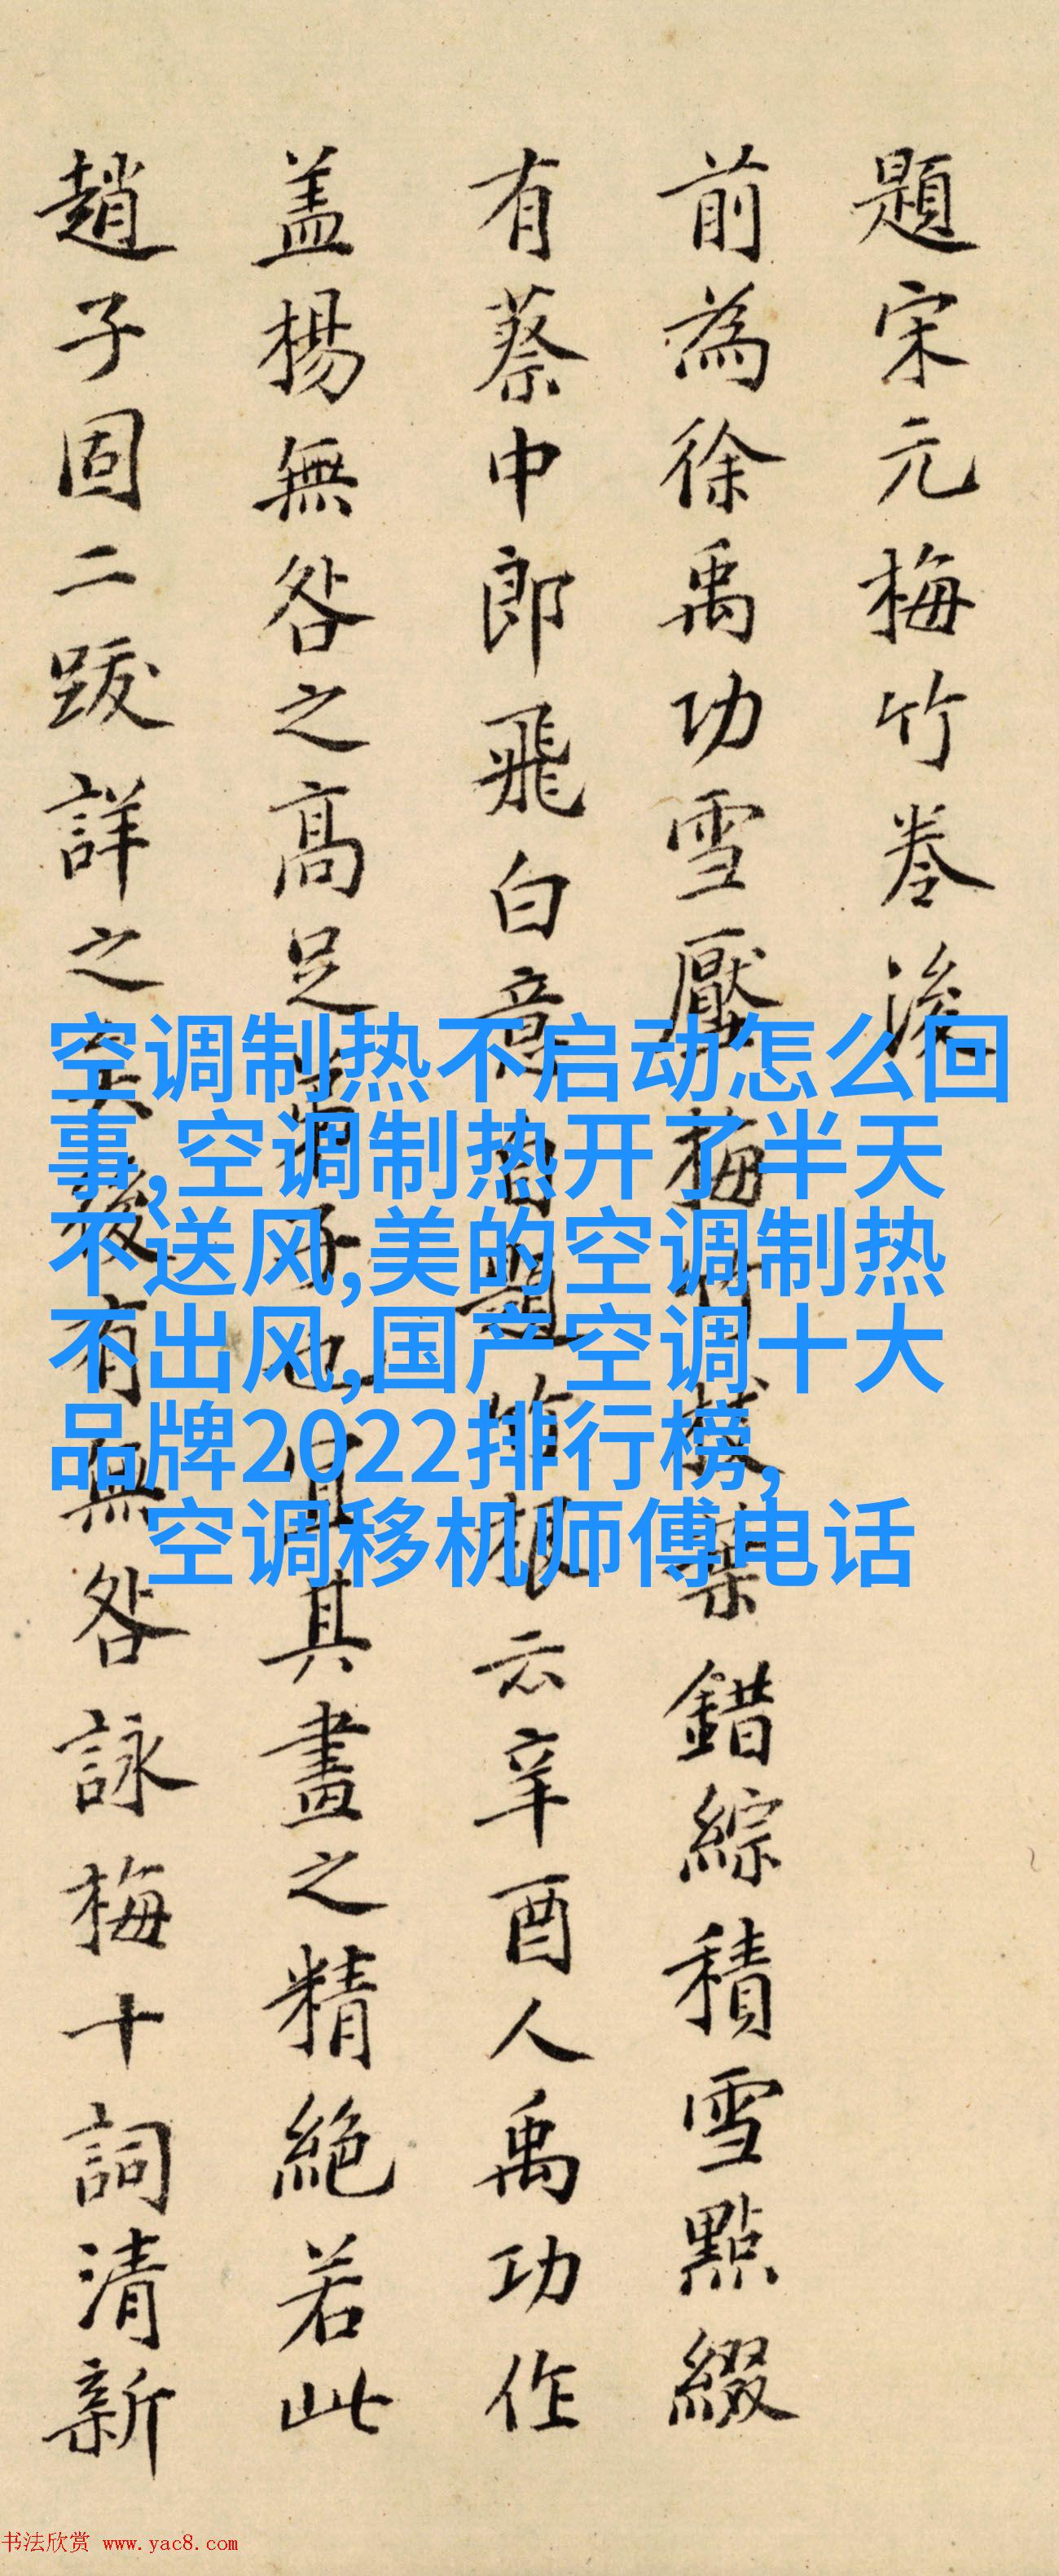 題宋元梅竹卷後
前為徐禹功雪壓梅竹枝葉錯綜積雪點綴
有蔡中郎飛白意自題竹根云辛酉人禹功作
盖楊無咎之高足弟子也宜其畫之精絕若此
趙子固二跋詳之矣後有無咎詠梅十詞清新
空调制热不启动怎么回
事,空调制热开了半天
不送风,美的空调制热
不出风,国产空调十大
品牌2022排行榜,
空调移机师傅电话
书法欣赏 www.yac8.com